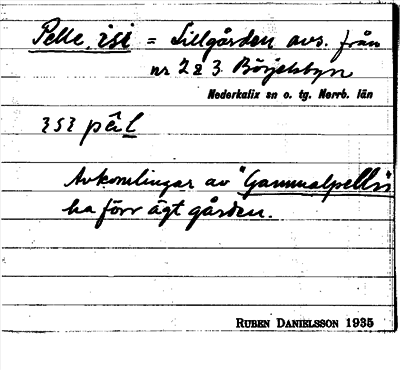 Pelle, isi = Lillgården avs. från
nr 2 & 3 Börjelsbyn
Nederkalix sn o. tg. Norrb. län
ɪsɪ pâl
Avkomlingar av "Gammalpelle"
ha förr ägt gården.
RUBEN DANIELSSON 1935